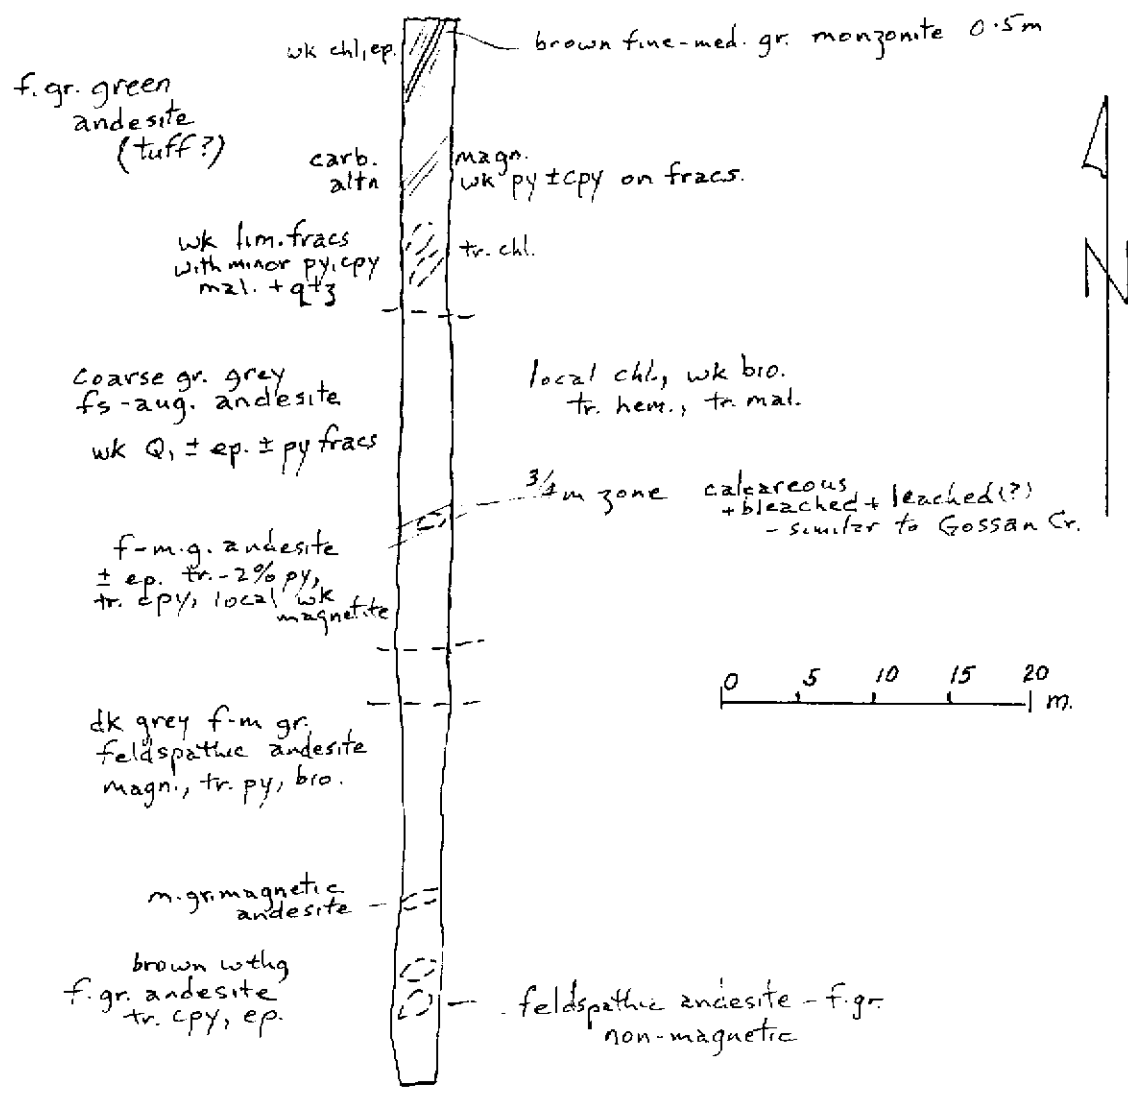 wk chl, ep.
brown fine-med. gr. monzonite 0.5m
f. gr. green
andesite
(tuff?)
carb.
altn
magn.
wk py ± cpy on fracs.
wk lim. fracs
with minor py, cpy
mal. + qtz
tr. chl.
N
coarse gr. grey
fs-aug. andesite
wk Q, ± ep. ± py fracs
local chl., wk bio.
tr. hem., tr. mal.
m zone calcareous
+ bleached + leached(?)
- similar to Gossan Cr.
f-m.g. andesite
± ep. tr.-2% py,
tr. cpy, local wk
magnetite
0 5 10 15 20
m.
dk grey f-m gr.
feldspathic andesite
magn., tr. py, bio.
m.gr. magnetic
andesite
brown wthg
f. gr. andesite
tr. cpy, ep.
feldspathic andesite - f. gr.
non-magnetic